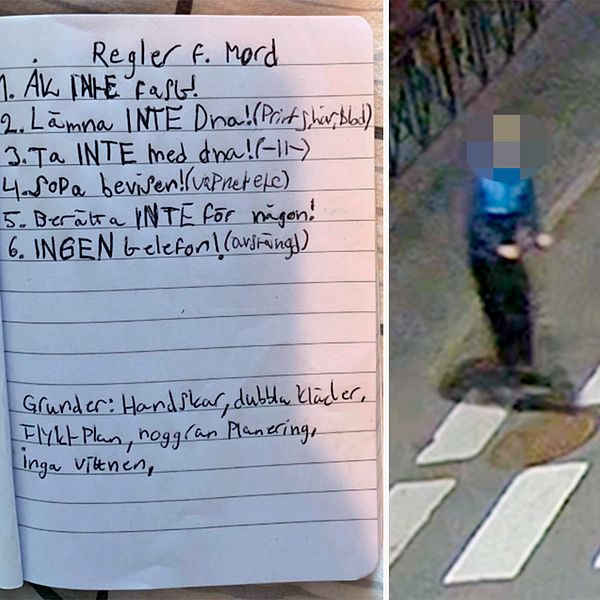 Regler f. Mord
1. Åk INTE fast!
2. Lämna INTE Dna! (Prints, hår, blod)
3. Ta INTE med dna! (-||-)
4. Sopa bevisen! (vapnet etc)
5. Berätta INTE för någon!
6. INGEN telefon! (avstängd)
Grunder: Handskar, dubbla kläder,
Flykt-Plan, noggran Planering,
inga vittnen,